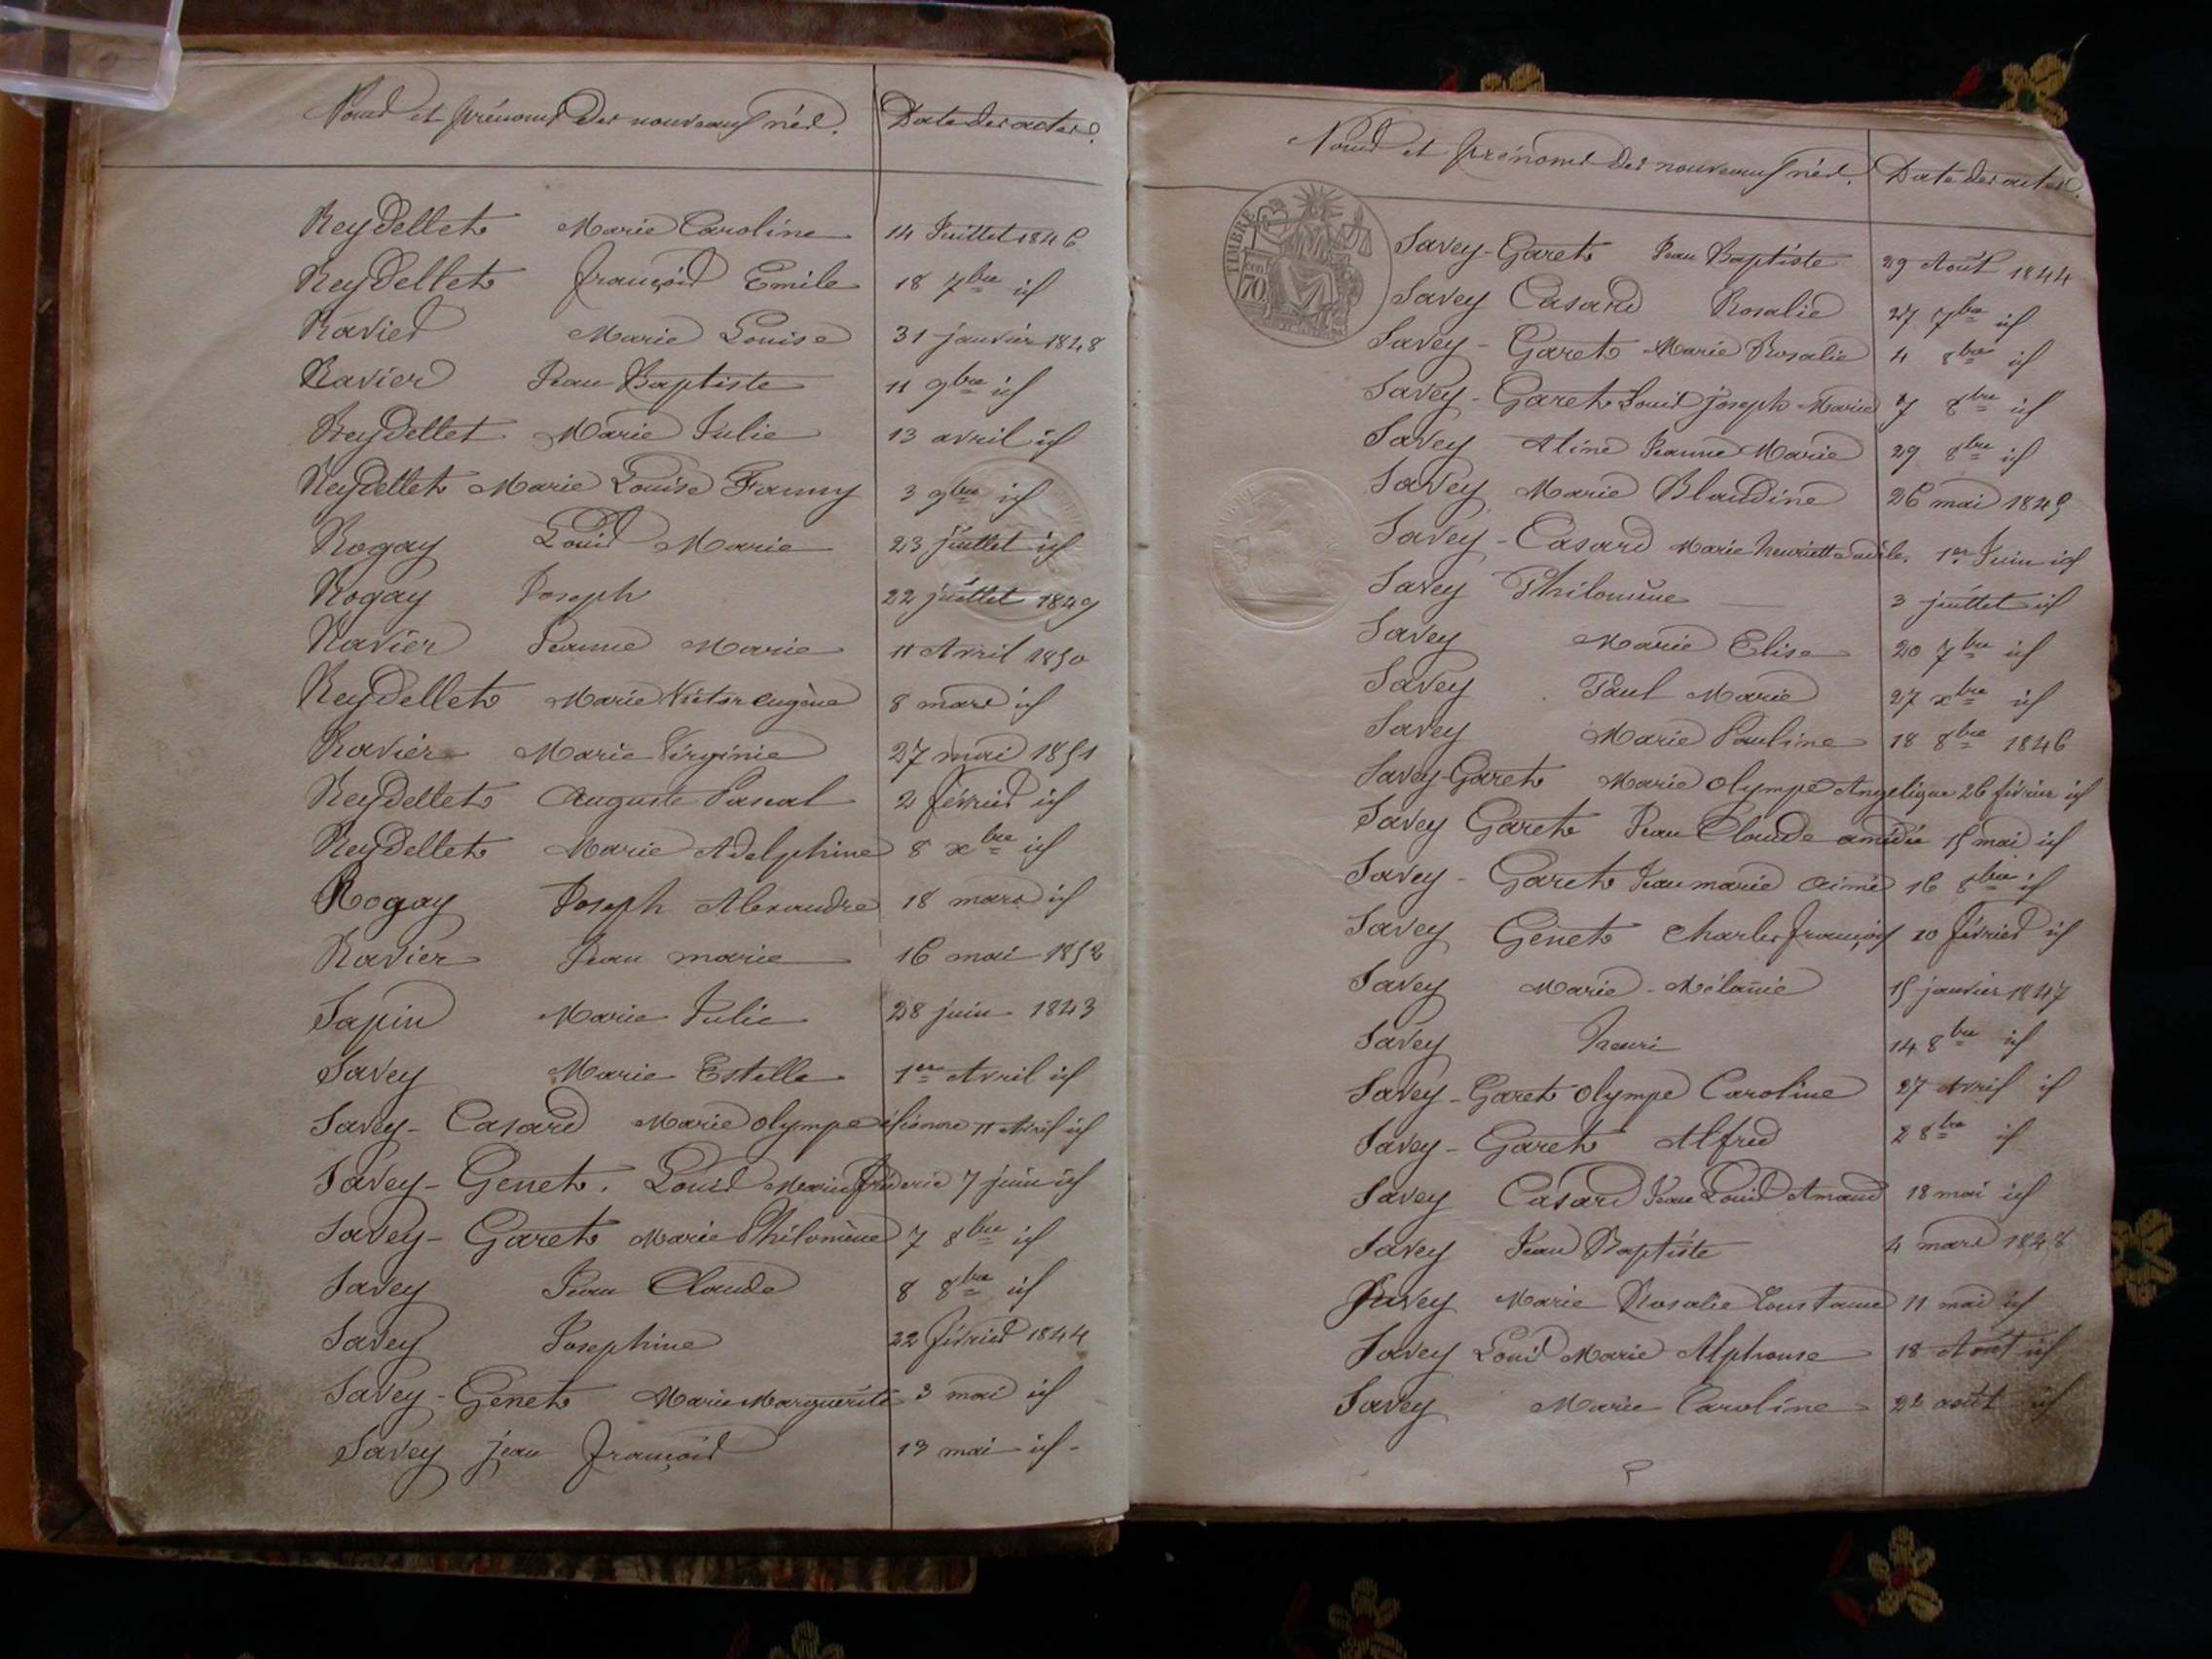 Noms et prénoms des nouveaux nés. Date des actes.
Reydellet Marie Caroline 14 Juillet 1846
Reydellet françois Emile 18 7bre id
Ravier Marie Louise 31 janvier 1848
Ravier Jean Baptiste 11 9bre id
Reydellet Marie Julie 13 avril id
Reydellet Marie Louise Fanny 3 9bre id
Rogay Louis Marie 23 juillet id
Rogay Joseph 22 juillet 1849
Ravier Jeanne Marie 11 Avril 1850
Reydellet Marie Victor eugène 8 mars id
Ravier Marie Virginie 27 mai 1851
Reydellet Auguste Pascal 2 février id
Reydellet Marie Adelphine 8 xbre id
Rogay Joseph Alexandre 18 mars id
Ravier Jean marie 16 mai 1852
Sapin Marie Julie 28 juin 1843
Savey Marie Estelle 1er Avril id
Savey - Casard Marie olympe éléonore 11 Avril id
Savey - Genet. Louis Marie frédéric 7 juin id
Savey - Garet Marie Philomène 7 8bre id
Savey Jean Claude 8 8bre id
Savey Josephine 22 février 1844
Savey - Genet Marie Marguerite 3 mai id
Savey jean françois 13 mai id -
Noms et prénoms des nouveaux nés. Date des actes.
TIMBRE
70
Savey - Garet Jean Baptiste 29 Août 1844
Savey Casard Rosalie 27 7bre id
Savey - Garet Marie Rosalie 4 8bre id
Savey - Garet Louis joseph Marie 7 8bre id
Savey Aline Jeanne Marie 29 8bre id
Savey Marie Blandine 26 mai 1845
Savey - Casard Marie henriette adèle. 1er Juin id
Savey Philomène 3 juillet id
Savey Marie Elise 20 7bre id
Savey Paul Marie 27 xbre id
Savey Marie Pauline 18 8bre 1846
Savey-Garet Marie Olympe Angelique 26 février id
Savey Garet Jean Claude amédée 15 mai id
Savey - Garet Jean marie aimé 16 8bre id
Savey Genet Charles françois 10 février id
Savey Marie - Mélanie 15 janvier 1847
Savey henri 14 8bre id
Savey - Garet Olympe Caroline 27 avril id
Savey - Garet Alfred 2 8bre id
Savey Casard Jean Louis Amand 18 mai id
Savey Jean Baptiste 4 mars 1848
Savey Marie Rosalie Constance 11 mai id
Savey Louis Marie Alphonse 18 Août id
Savey Marie Caroline 22 août id